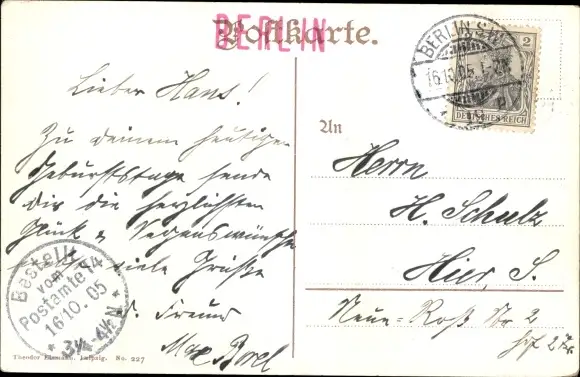 Postkarte.
BERLIN
BERLIN S.W.
16.10.05.
2
DEUTSCHES REICH
Lieber Hans!
Zu deinem heutigen
Geburtstage sende
dir die herzlichsten
Glück & Segenswünsche
viele Grüße
d. Freund
Max
An
Herrn
H. Schulz
Hier, S.
Neue-Roß Str. 2
Bestellt
vom
Postamte 14
16.10.05
3¼-4½N
Theodor Eismann, Leipzig. No. 227